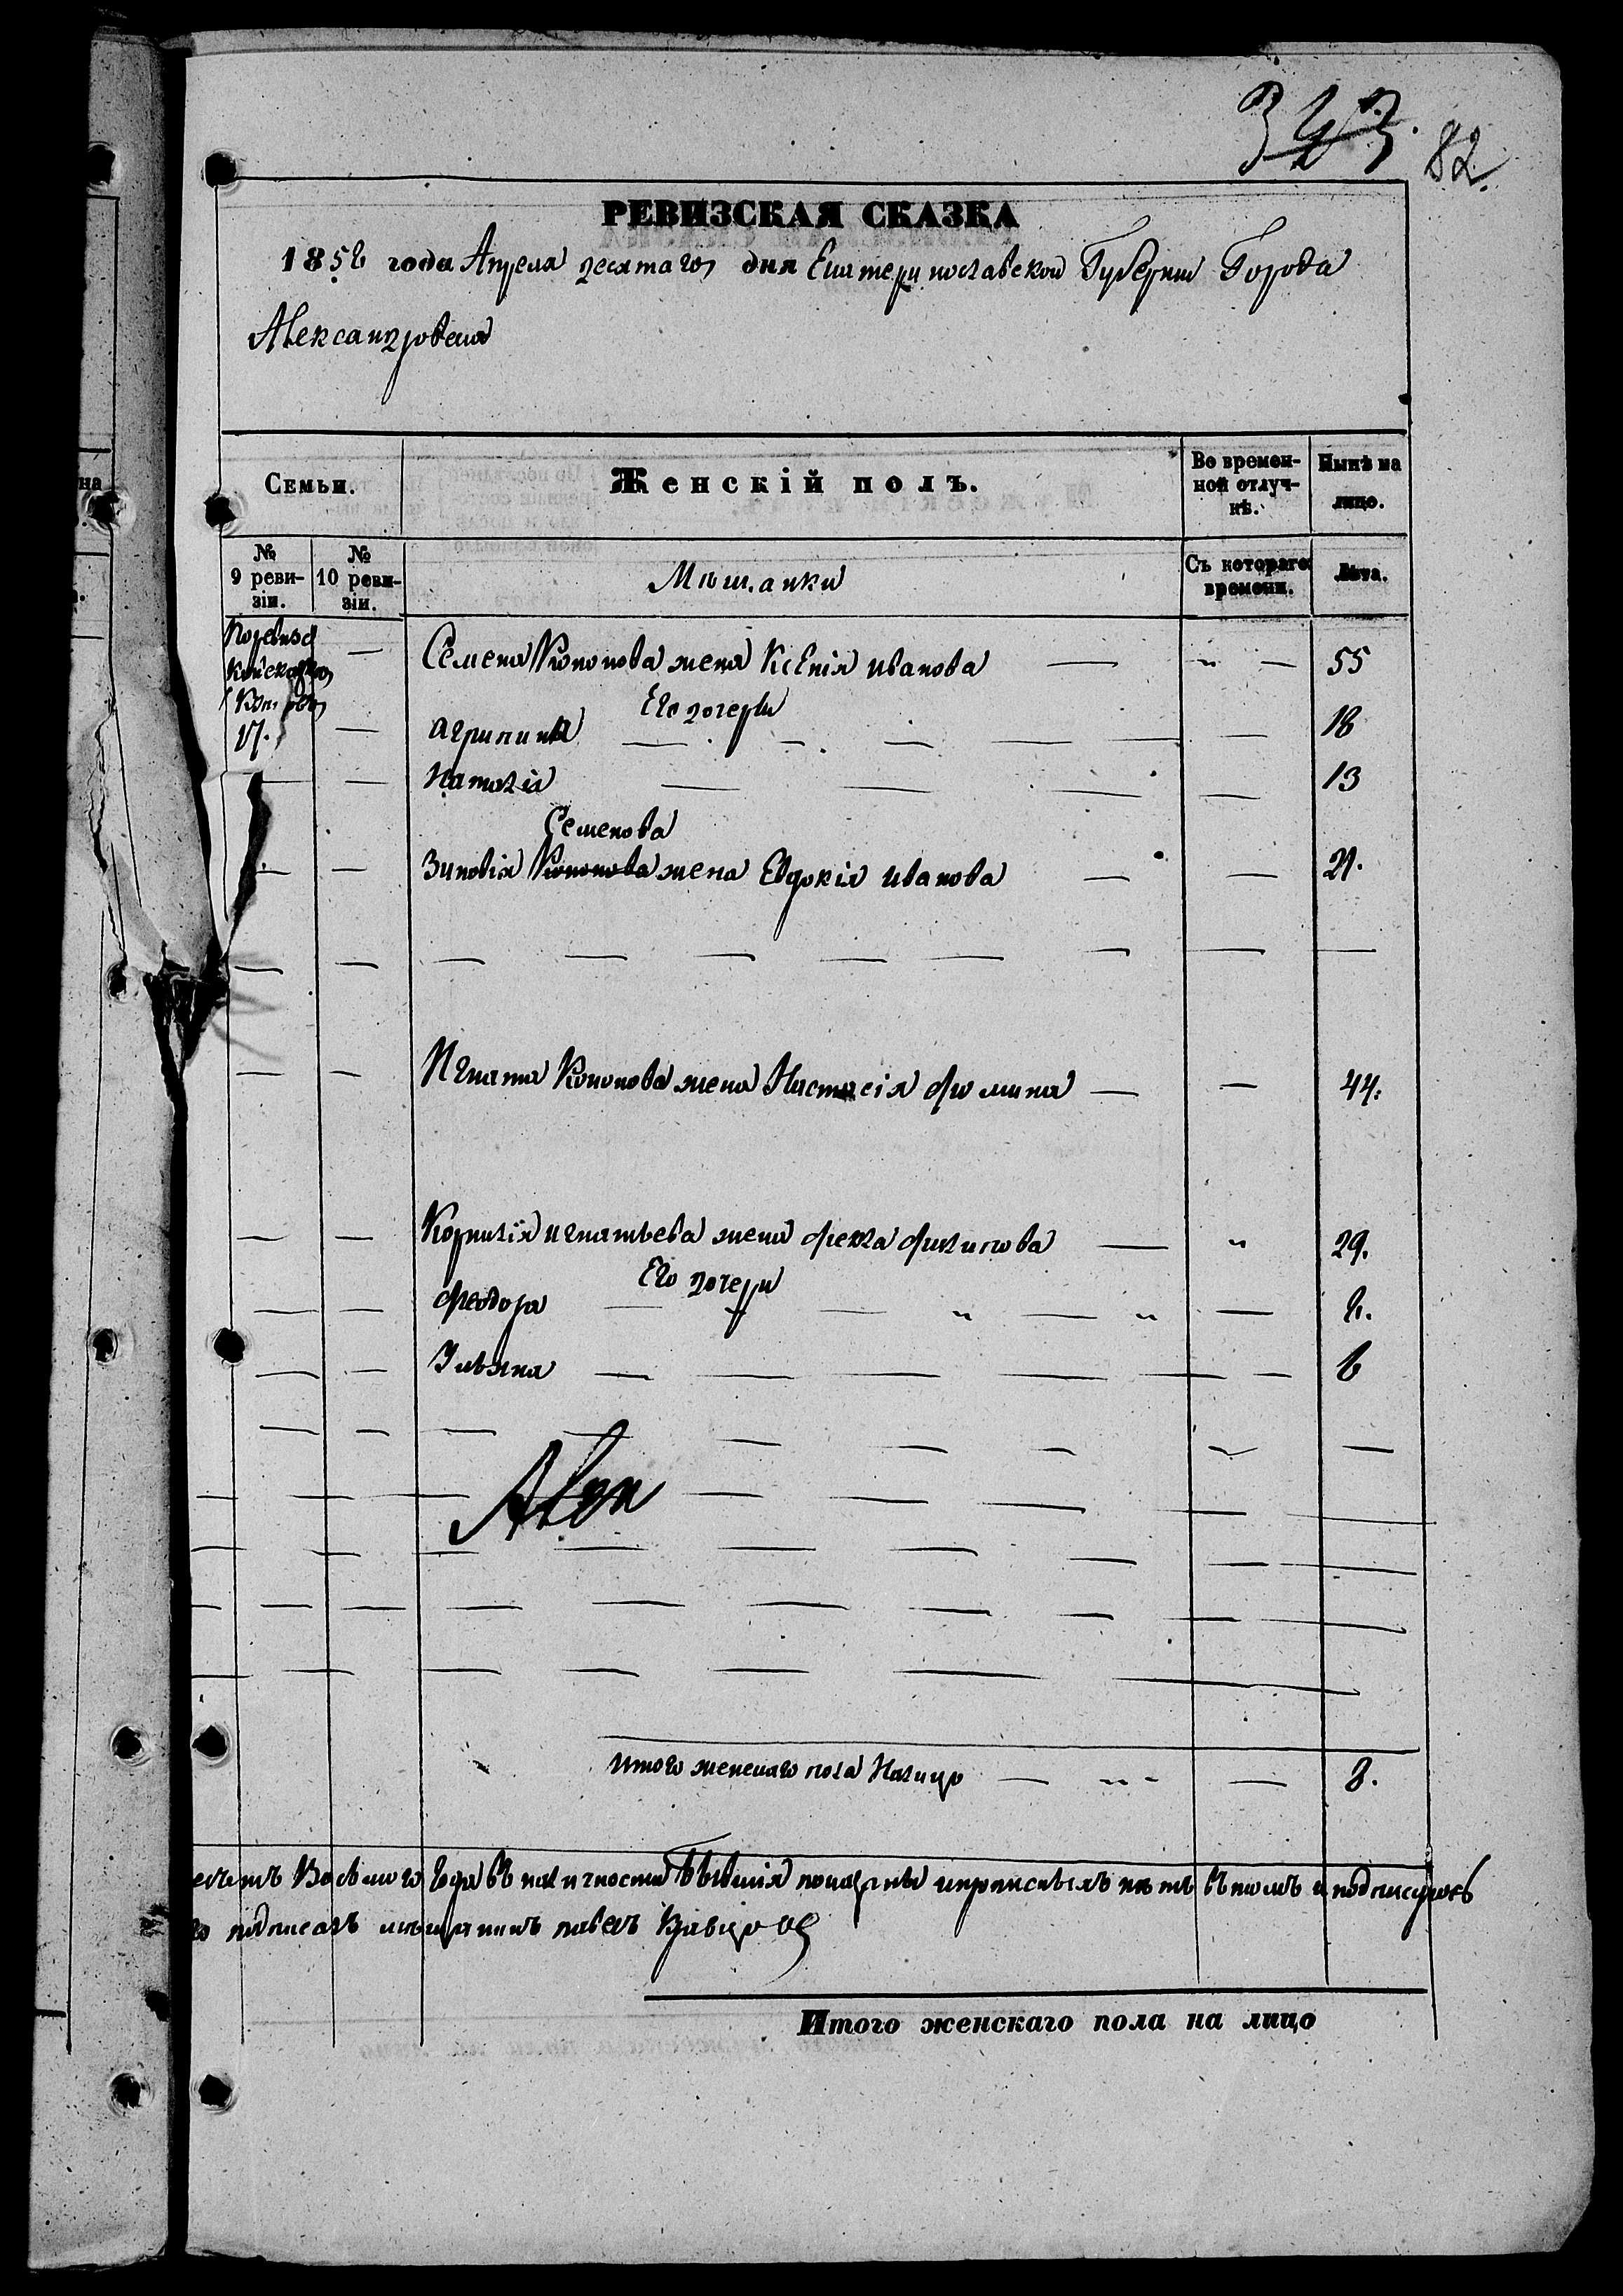 343. 82.
РЕВИЗСКАЯ СКАЗКА
1858 года Апреля десятаго дня Екатеринославской Губернии Города
Александровска
Семьи.
Женскій полъ.
Во времен-
ной отлуч-
кѣ.
Нынѣ на
лицо.
№
9 реви-
зіи.
№
10 реви-
зіи.
Мѣщанки
Съ котораго
времени.
Лѣта.
Семена Кононова жена Ксенія иванова 55
Его дочери
агрипина 18
Наталія 13
Семенова
Зиновія Кононова жена Евдокія иванова 21.
Игната Кононова жена Настасія фомина 44.
Корнилія игнатьева жена фекла филипова 29.
Его дочери
феодора 8.
Ульяна 6
Алек
итого женскаго пола Налицо 8.
душъ въ наличности бывшія показаны и прописныхъ нѣтъ въ томъ и подписуюсь
подписалъ мѣщанинъ павелъ Кравцов
Итого женскаго пола на лицо